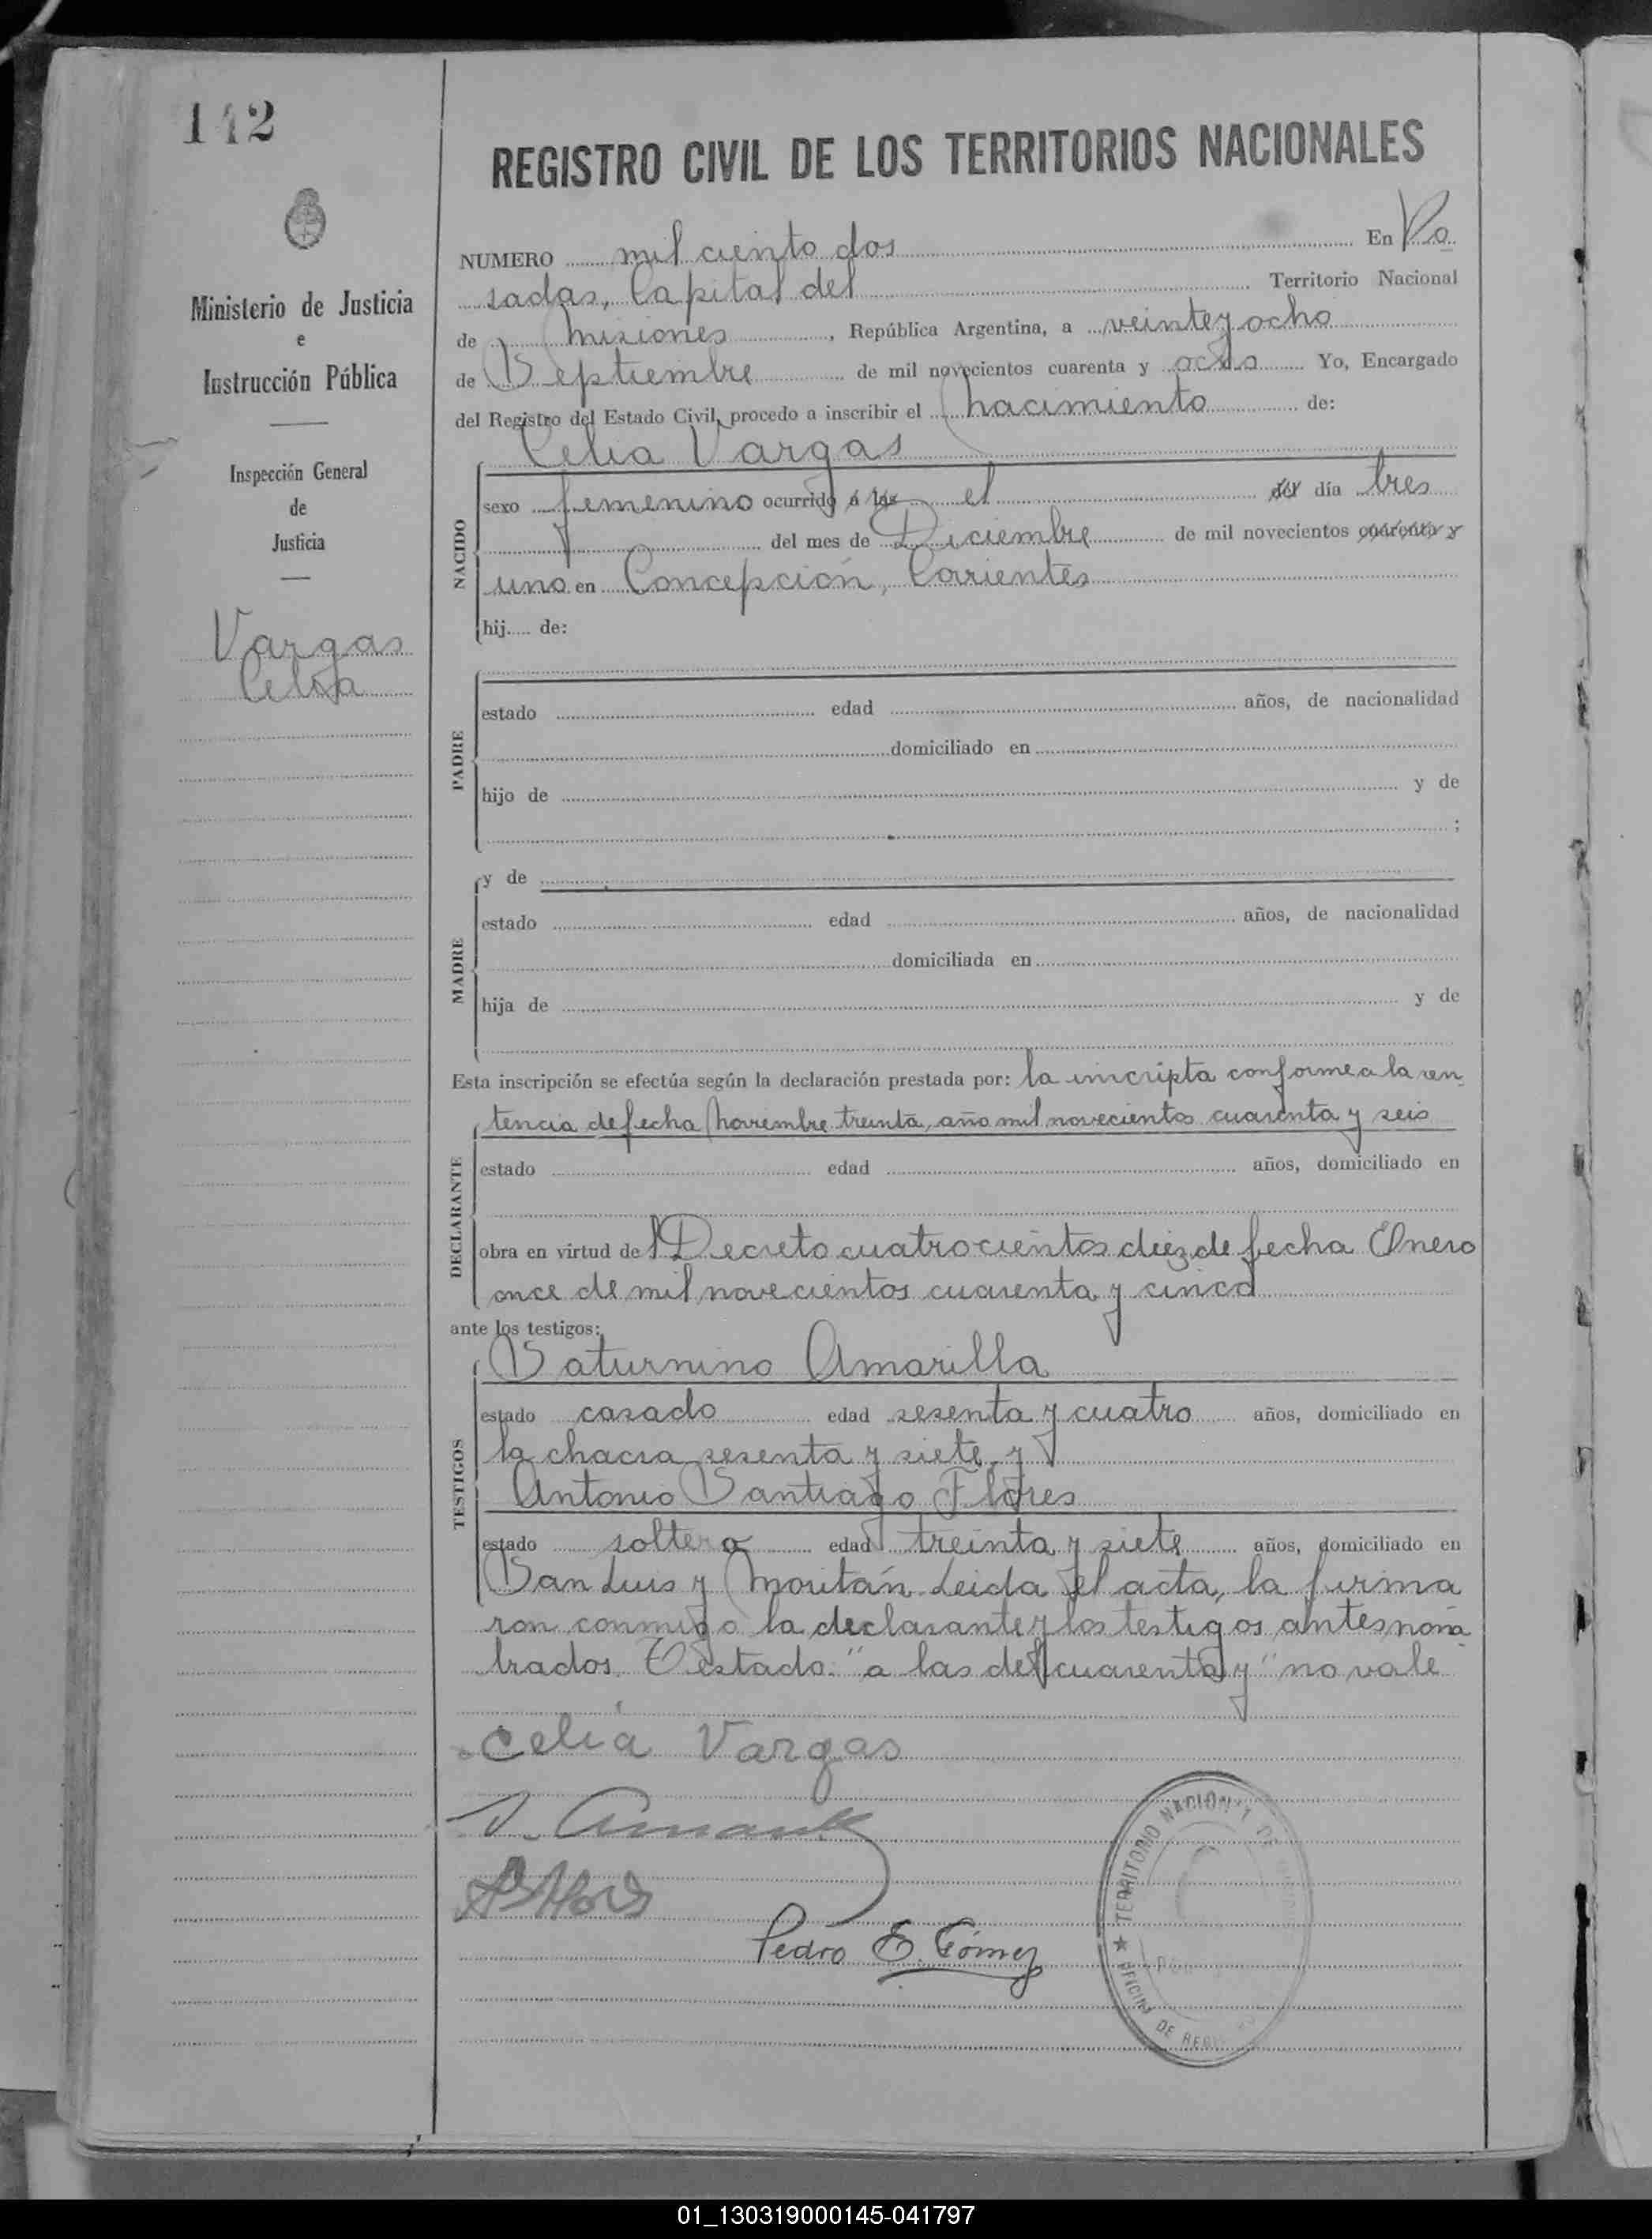 142
REGISTRO CIVIL DE LOS TERRITORIOS NACIONALES
NUMERO mil ciento dos En Po
sadas, Capital del Territorio Nacional
de Misiones, República Argentina, a veinte y ocho
de Septiembre de mil novecientos cuarenta y ocho Yo, Encargado
del Registro del Estado Civil, procedo a inscribir el nacimiento de:
Celia Vargas
NACIDO
sexo femenino ocurrido á las el del día tres
del mes de Diciembre de mil novecientos cuarenta y
uno en Concepción, Corrientes
hij de:
PADRE
estado edad años, de nacionalidad
domiciliado en
hijo de y de
;
MADRE
y de
estado edad años, de nacionalidad
domiciliada en
hija de y de
Esta inscripción se efectúa según la declaración prestada por: la inscripta conforme a la sen
DECLARANTE
tencia de fecha Noviembre treinta, año mil novecientos cuarenta y seis
estado edad años, domiciliado en
obra en virtud del Decreto cuatrocientos diez de fecha Enero
once de mil novecientos cuarenta y cinco
ante los testigos:
TESTIGOS
Saturnino Amarilla
estado casado edad sesenta y cuatro años, domiciliado en
la chacra sesenta y siete y
Antonio Santiago Flores
estado soltero edad treinta y siete años, domiciliado en
San Luis y Moritán Leida el acta, la firma
ron conmigo la declarante y los testigos antes nom
brados. Testado: "a las del cuarenta y" no vale
Celia Vargas
Pedro E. Gómez
TERRITORIO NACIONAL DE
OFICINA DE REG
Ministerio de Justicia
e
Instrucción Pública
Inspección General
de
Justicia
Vargas
Celia
01_130319000145-041797